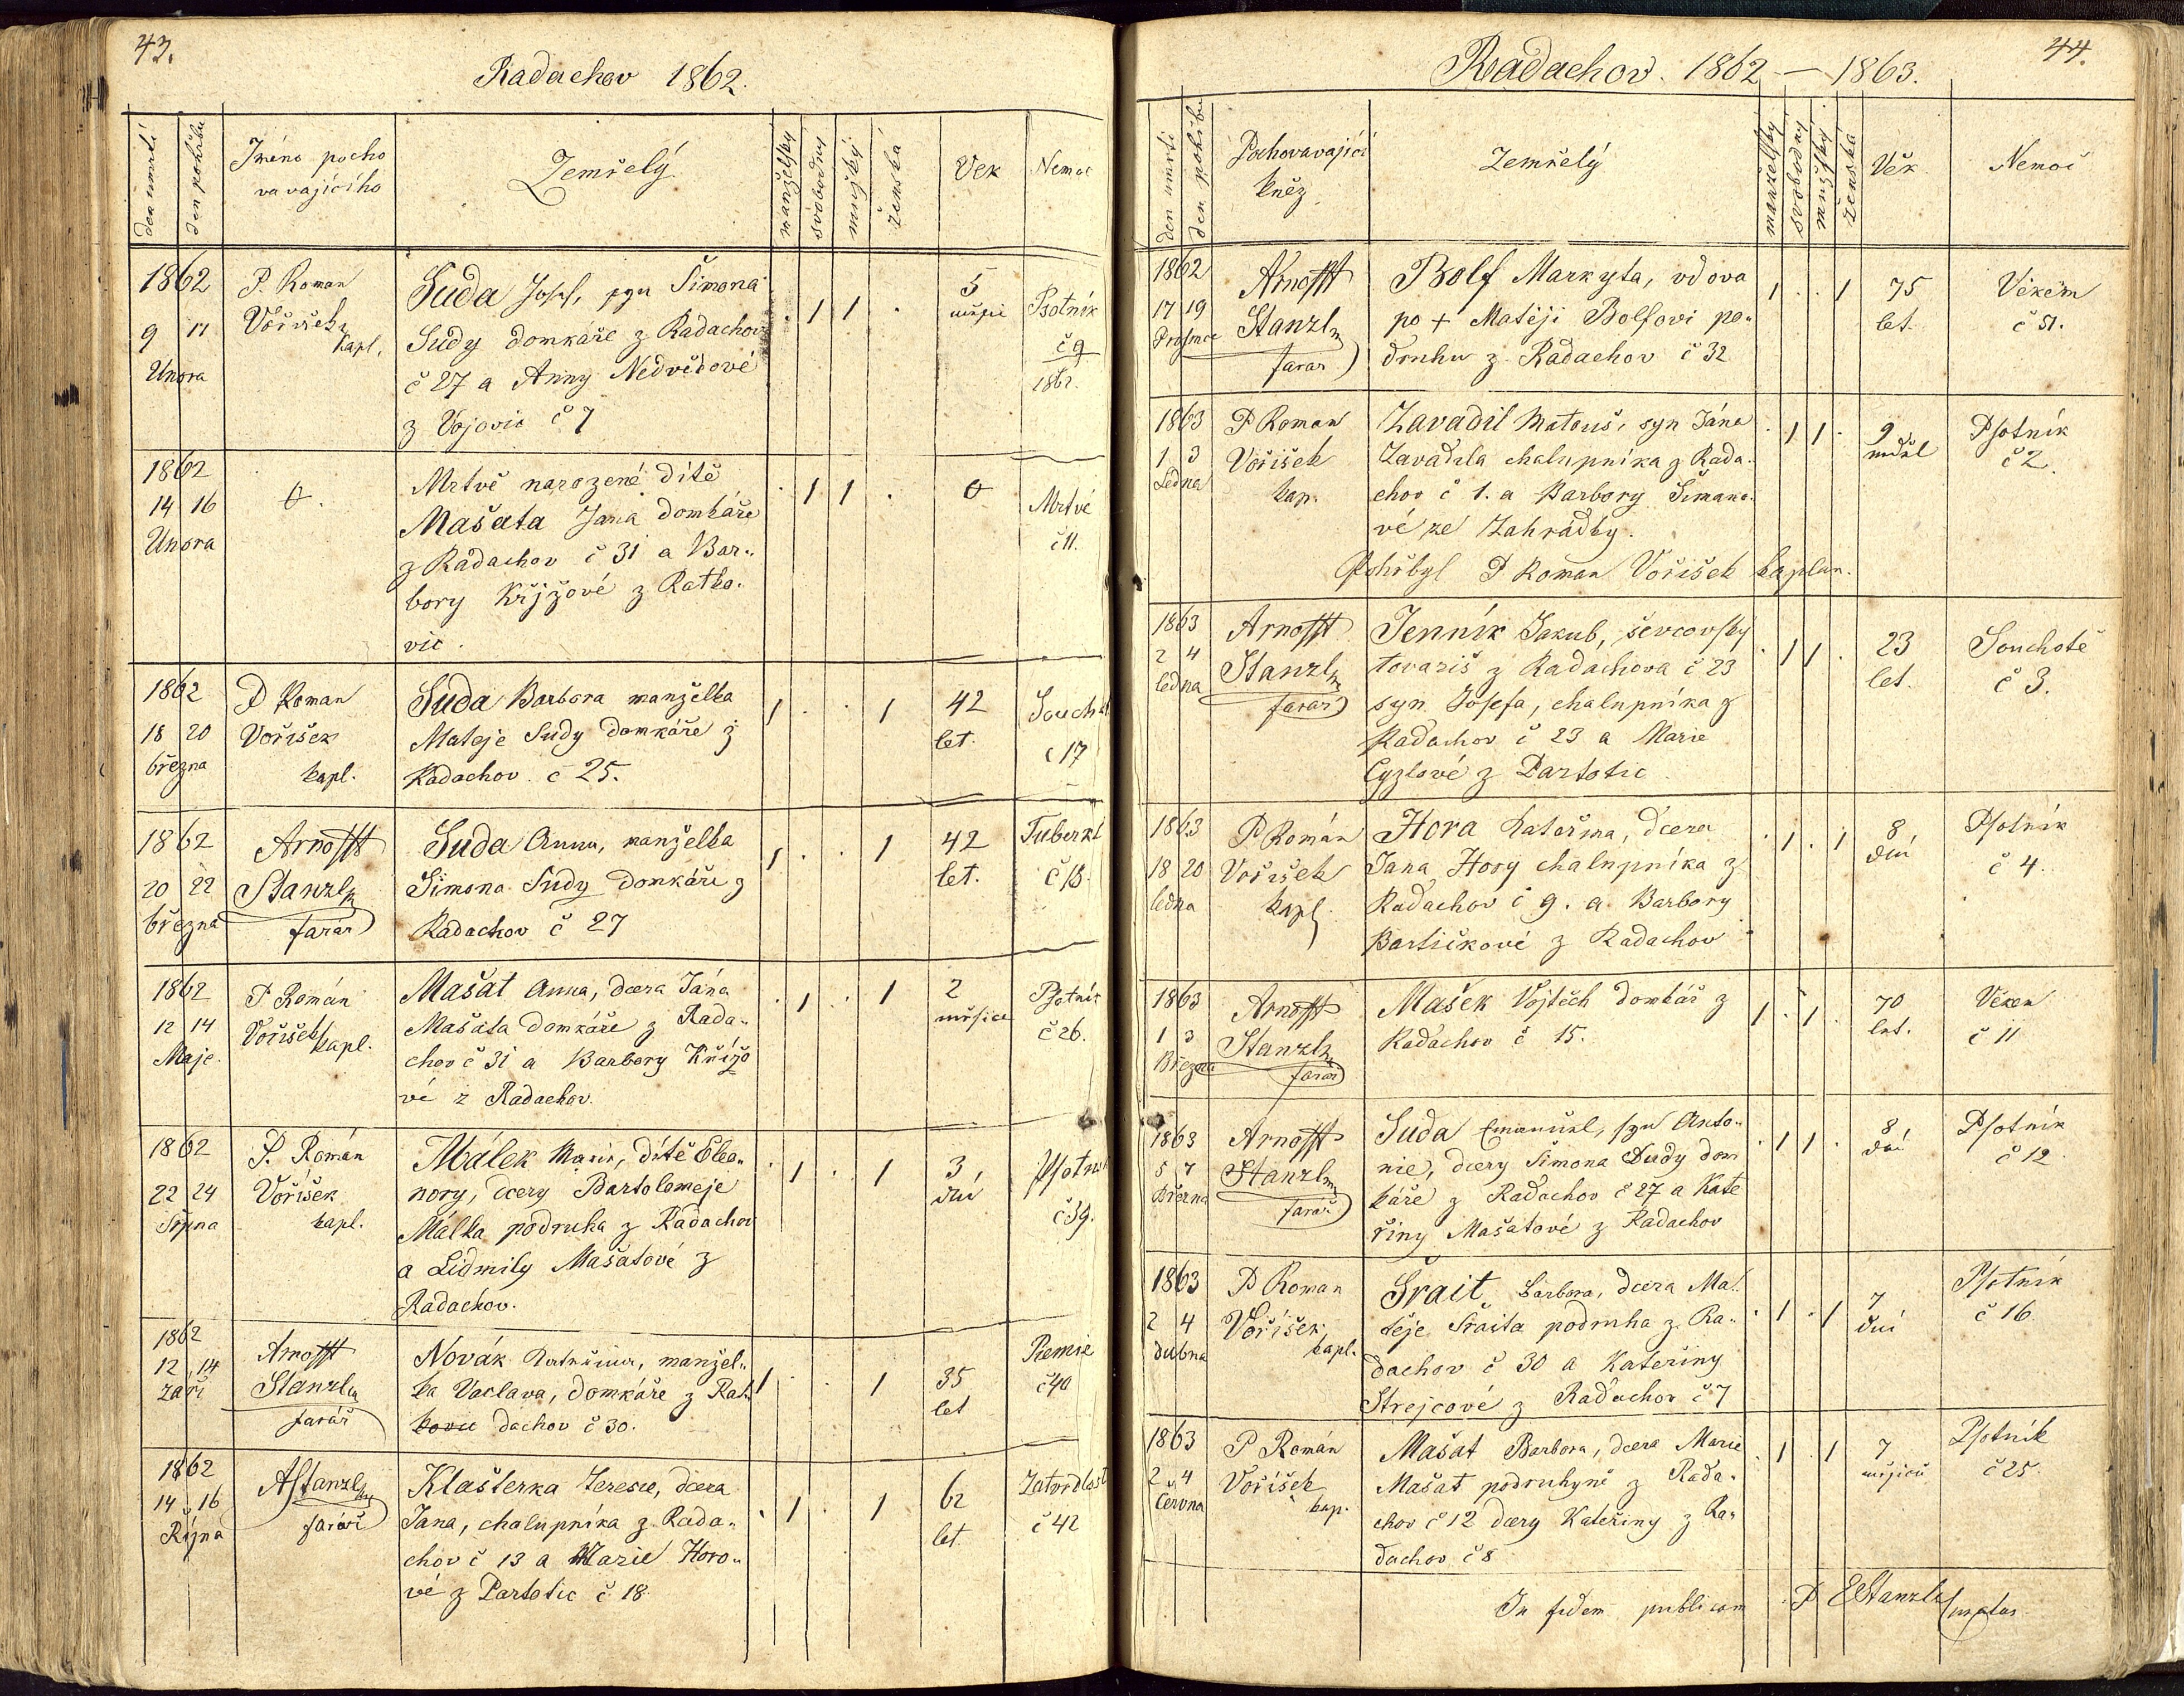 43.
Radachov 1862.
den úmrtí
den pohřbu
Jméno pocho
vavajícího
Zemřelý
manželský
svobodný
mužský
ženská
Vek
Nemoc
1862
9 11
Unora
P. Roman
Voříšek
kapl.
Suda Josef, syn Šimona
Sudy domkaře z Radachov
č 27 a Anny Nedvědové
z Vojovic č 7
5
měsíc
Psotník
č 9
1862.
1862
14 16
Unora
0.
Mrtvě narozené dítě
Mašata Jana domkáře
z Radachov č 31 a Bar„
bory Křjžové z Ratbo„
vic.
0
Mrtvé
č 11.
1862
18 20
března
P Roman
Voříšek
kapl.
Suda Barbora manželka
Mateje Sudy domkáře z
Radachov č 25.
42
let.
Souchot
č 17
1862
20 22
března
Arnošt
Stanzl
farář
Suda Anna, manželka
Šimona Sudy domkáře z
Radachov č 27
42
let.
Tuberkl
č 18.
1862
12 14
Maje
P Román
Voříšek kapl.
Mašat Anna, dcera Jána
Mašata domkáře z Rada„
chov č 31 a Barbory Křížo
vé z Radachov.
2
měsice
Psotník
č 26.
1862
22 24
Srpna
P. Román
Voříšek
kapl.
Málek Marie, dítě Eleo„
nory, dcery Bartolomeje
Málka podruha z Radachov
a Lidmily Mašatové z
Radachov.
3,
dní
Psotník
č 39.
1862
12 14
září
Arnošt
Stanzl
farář
Novák Kateřina, manžel„
ka Vaclava, domkáře z Rat
dachov č 30.
35
let
č 40
1862
14 16
Října
A Stanzl
farář
Klašterka Teresie, dcera
Jána, chalupníka z Rada„
chov č 13 a Marie Horo„
vé z Partotic č 18.
62
let.
Zatvrdlost
č 42
44.
Radachov. 1862 — 1863.
den úmrti
den pohřbu
Pochovavající
kněz
Zemřelý
manželský
svobodný
mužský
ženská
Věk
Nemoc
1862
17 19
Prosince
Arnošt
Stanzl
farar
Bolf Markyta, vdova
po + Matěji Bolfovi po„
druhu z Radachov č 32
75
let.
Věkem
č 51.
1863
1 3
Ledna
P Roman
Voříšek
kap.
Zavadil Matouš, syn Jána
Zavadila chalupníka z Rada„
chov č 1. a Barbory Šimano„
vé ze Zahrádky.
Pohřbyl P Roman Voříšek kaplan.
9
neděl
Psotník
č 2.
1863
2 4
ledna
Arnošt
Stanzl
farář
Jenník Jakub, ševcovský
tovariš z Radachova č 23
syn Josefa, chalupníka z
Radachov č 23 a Marie
Cyzlové z Partotic
23
let.
Souchotě
č 3.
1863
18 20
ledna
P Román
Voříšek
kapl.
Hora Kateřina, dcera
Jana Hory chalupníka z
Radachov č 9. a Barbory
Bartičkové z Radachov
8
dní
Psotník
č 4.
1863
1 3
Března
Arnošt
Stanzl
farář
Mašek Vojtěch domkář z
Radachov č 15.
70
let.
Věkem
č 11
1863
5 7
Března
Arnošt
Stanzl
farář
Suda Emanuel, syn Anto„
nie, dcery Šimona Sudy dom
káře z Radachov č 27 a Kate
řiny Mašatové z Radachov
8
dní
Psotník
č 12
1863
2 4
dubna
P Roman
Voříšek
kapl.
Šrait Barbora, dcera Ma„
těje Šraita podruha z Ra„
dachov č 30 a Kateřiny
Strejcové z Radachov č 7
7
dní
Psotník
č 16
1863
2 4
Června
P Román
Voříšek
kap.
Mašat Barbora, dcera Marie
Mašat podruhyně z Rada„
chov č 12 dcery Kateřiny z Ra„
dachov č 8
7
měsíců
Psotník
č 25.
In fidem publicam P E Stanzl